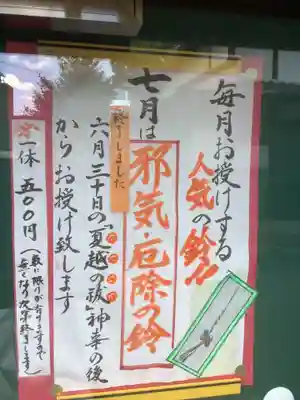 毎月お授けする
人気の鈴!!
七月は
邪気・厄除の鈴
終了しました
六月三十日の「夏越の祓」神事の後
なごし
はらい
からお授け致します
一体 五〇〇円
(数に限りが有りますので
無くなり次第終了します)